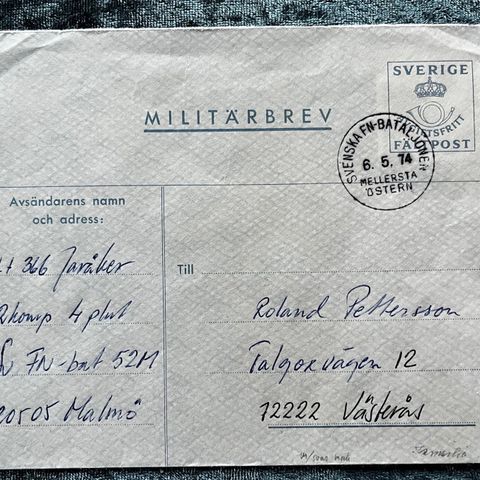 MILITÄRBREV
SVERIGE
AVGIFTSFRITT
FÄLTPOST
SVENSKA FN-BATALJONEN
6. 5. 74
MELLERSTA
ÖSTERN
Avsändarens namn
och adress:
366 Jaråker
komp 4 plut
FN-bat 52M
20505 Malmö
Till
Roland Pettersson
Talgoxvägen 12
72222 Västerås